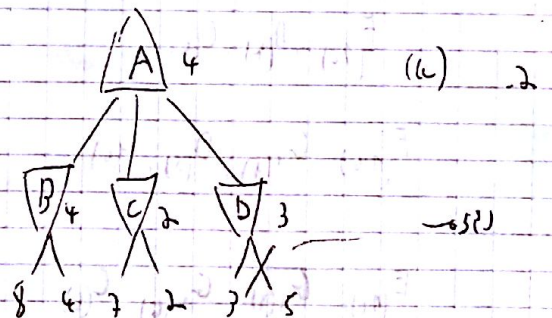 A 4
(k) .2
B 4 C 2 D 3
8 4 7 2 3 5